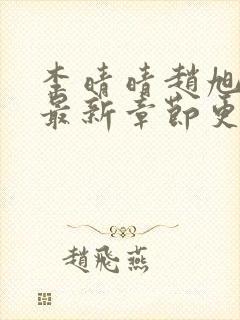 李晴晴趙旭
最新章節更
趙飛燕